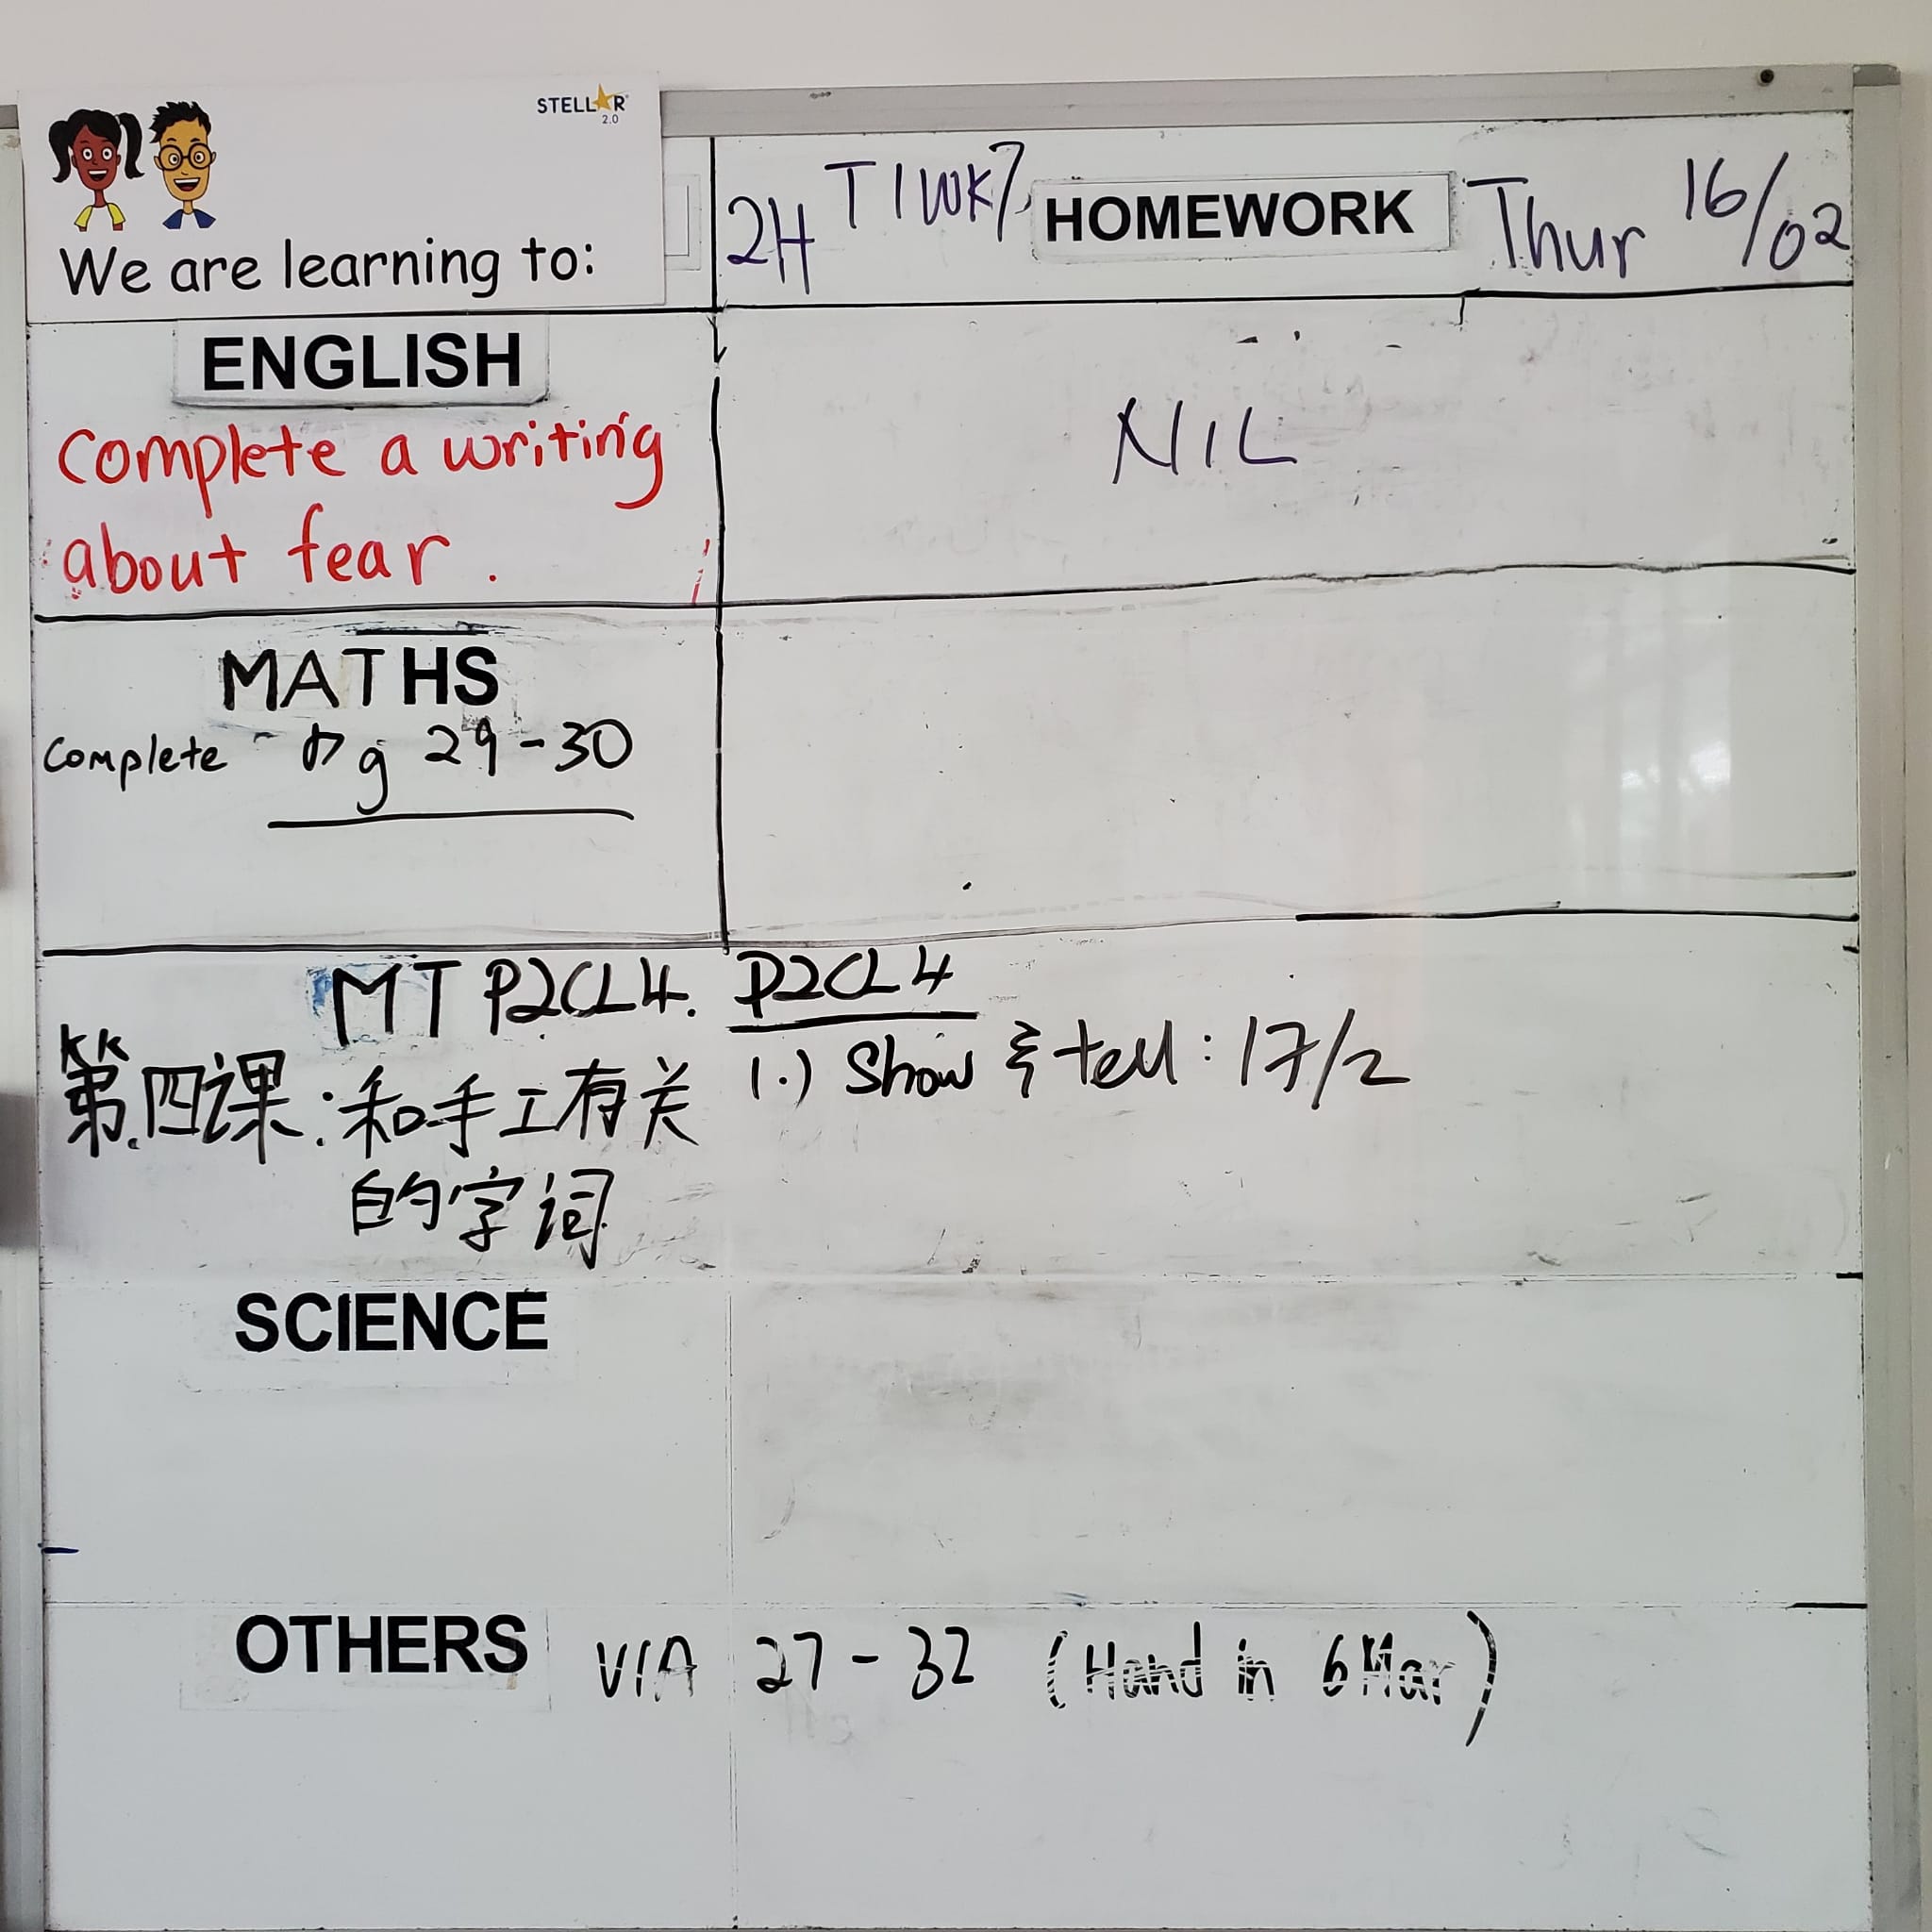 STELLAR 2.0
We are learning to:
2H T1WK7 HOMEWORK Thur 16/02
ENGLISH
Complete a writing
about fear.
NIL
MATHS
Complete pg 29-30
MT P2CL4.
第四课:和手工有关
的字词
P2CL4
1.) Show & tell: 17/2
SCIENCE
OTHERS
VIA 27-32 (Hand in 6 Mar)